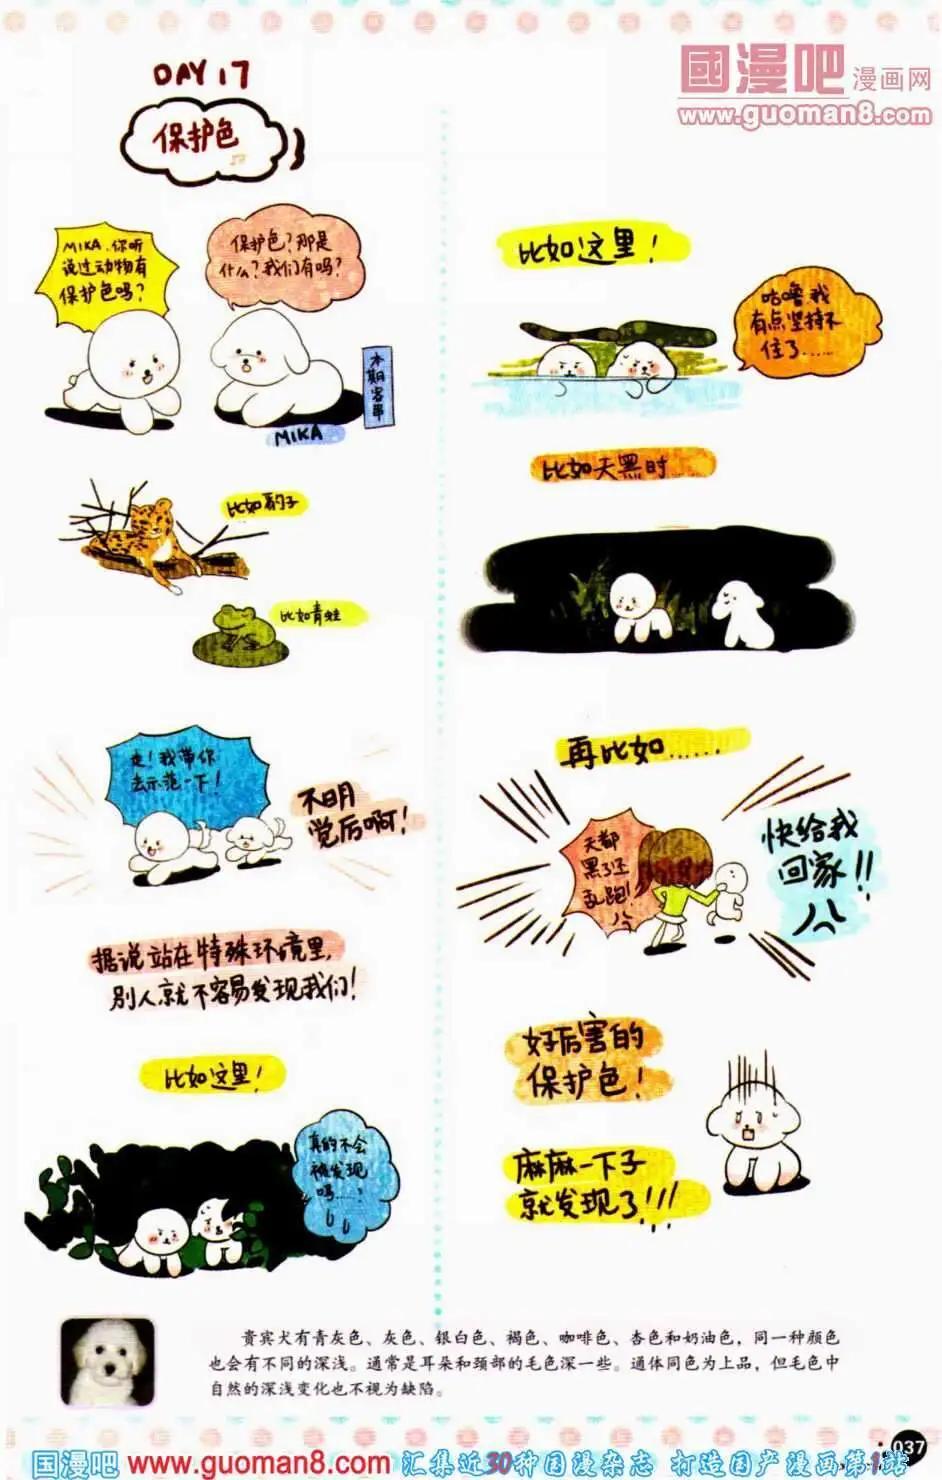 國漫吧 漫画网
www.guoman8.com
DAY 17
保护色
MIKA，你听
说过动物有
保护色吗？
保护色？那是
什么？我们有吗？
本期客串
MIKA
比如豹子
比如青蛙
走！我带你
去示范一下！
不明
觉厉啊！
据说站在特殊环境里，
别人就不容易发现我们！
比如这里！
真的不会
被发现
吗……？
比如这里！
咕噜，我
有点坚持不
住了……
比如天黑时
再比如……
天都
黑了还
乱跑！
快给我
回家！！
好厉害的
保护色！
麻麻一下子
就发现了！！！
贵宾犬有青灰色、灰色、银白色、褐色、咖啡色、杏色和奶油色，同一种颜色
也会有不同的深浅。通常是耳朵和颈部的毛色深一些。通体同色为上品，但毛色中
自然的深浅变化也不视为缺陷。
037
国漫吧 www.guoman8.com 汇集近30种国漫杂志 打造国产漫画第1站